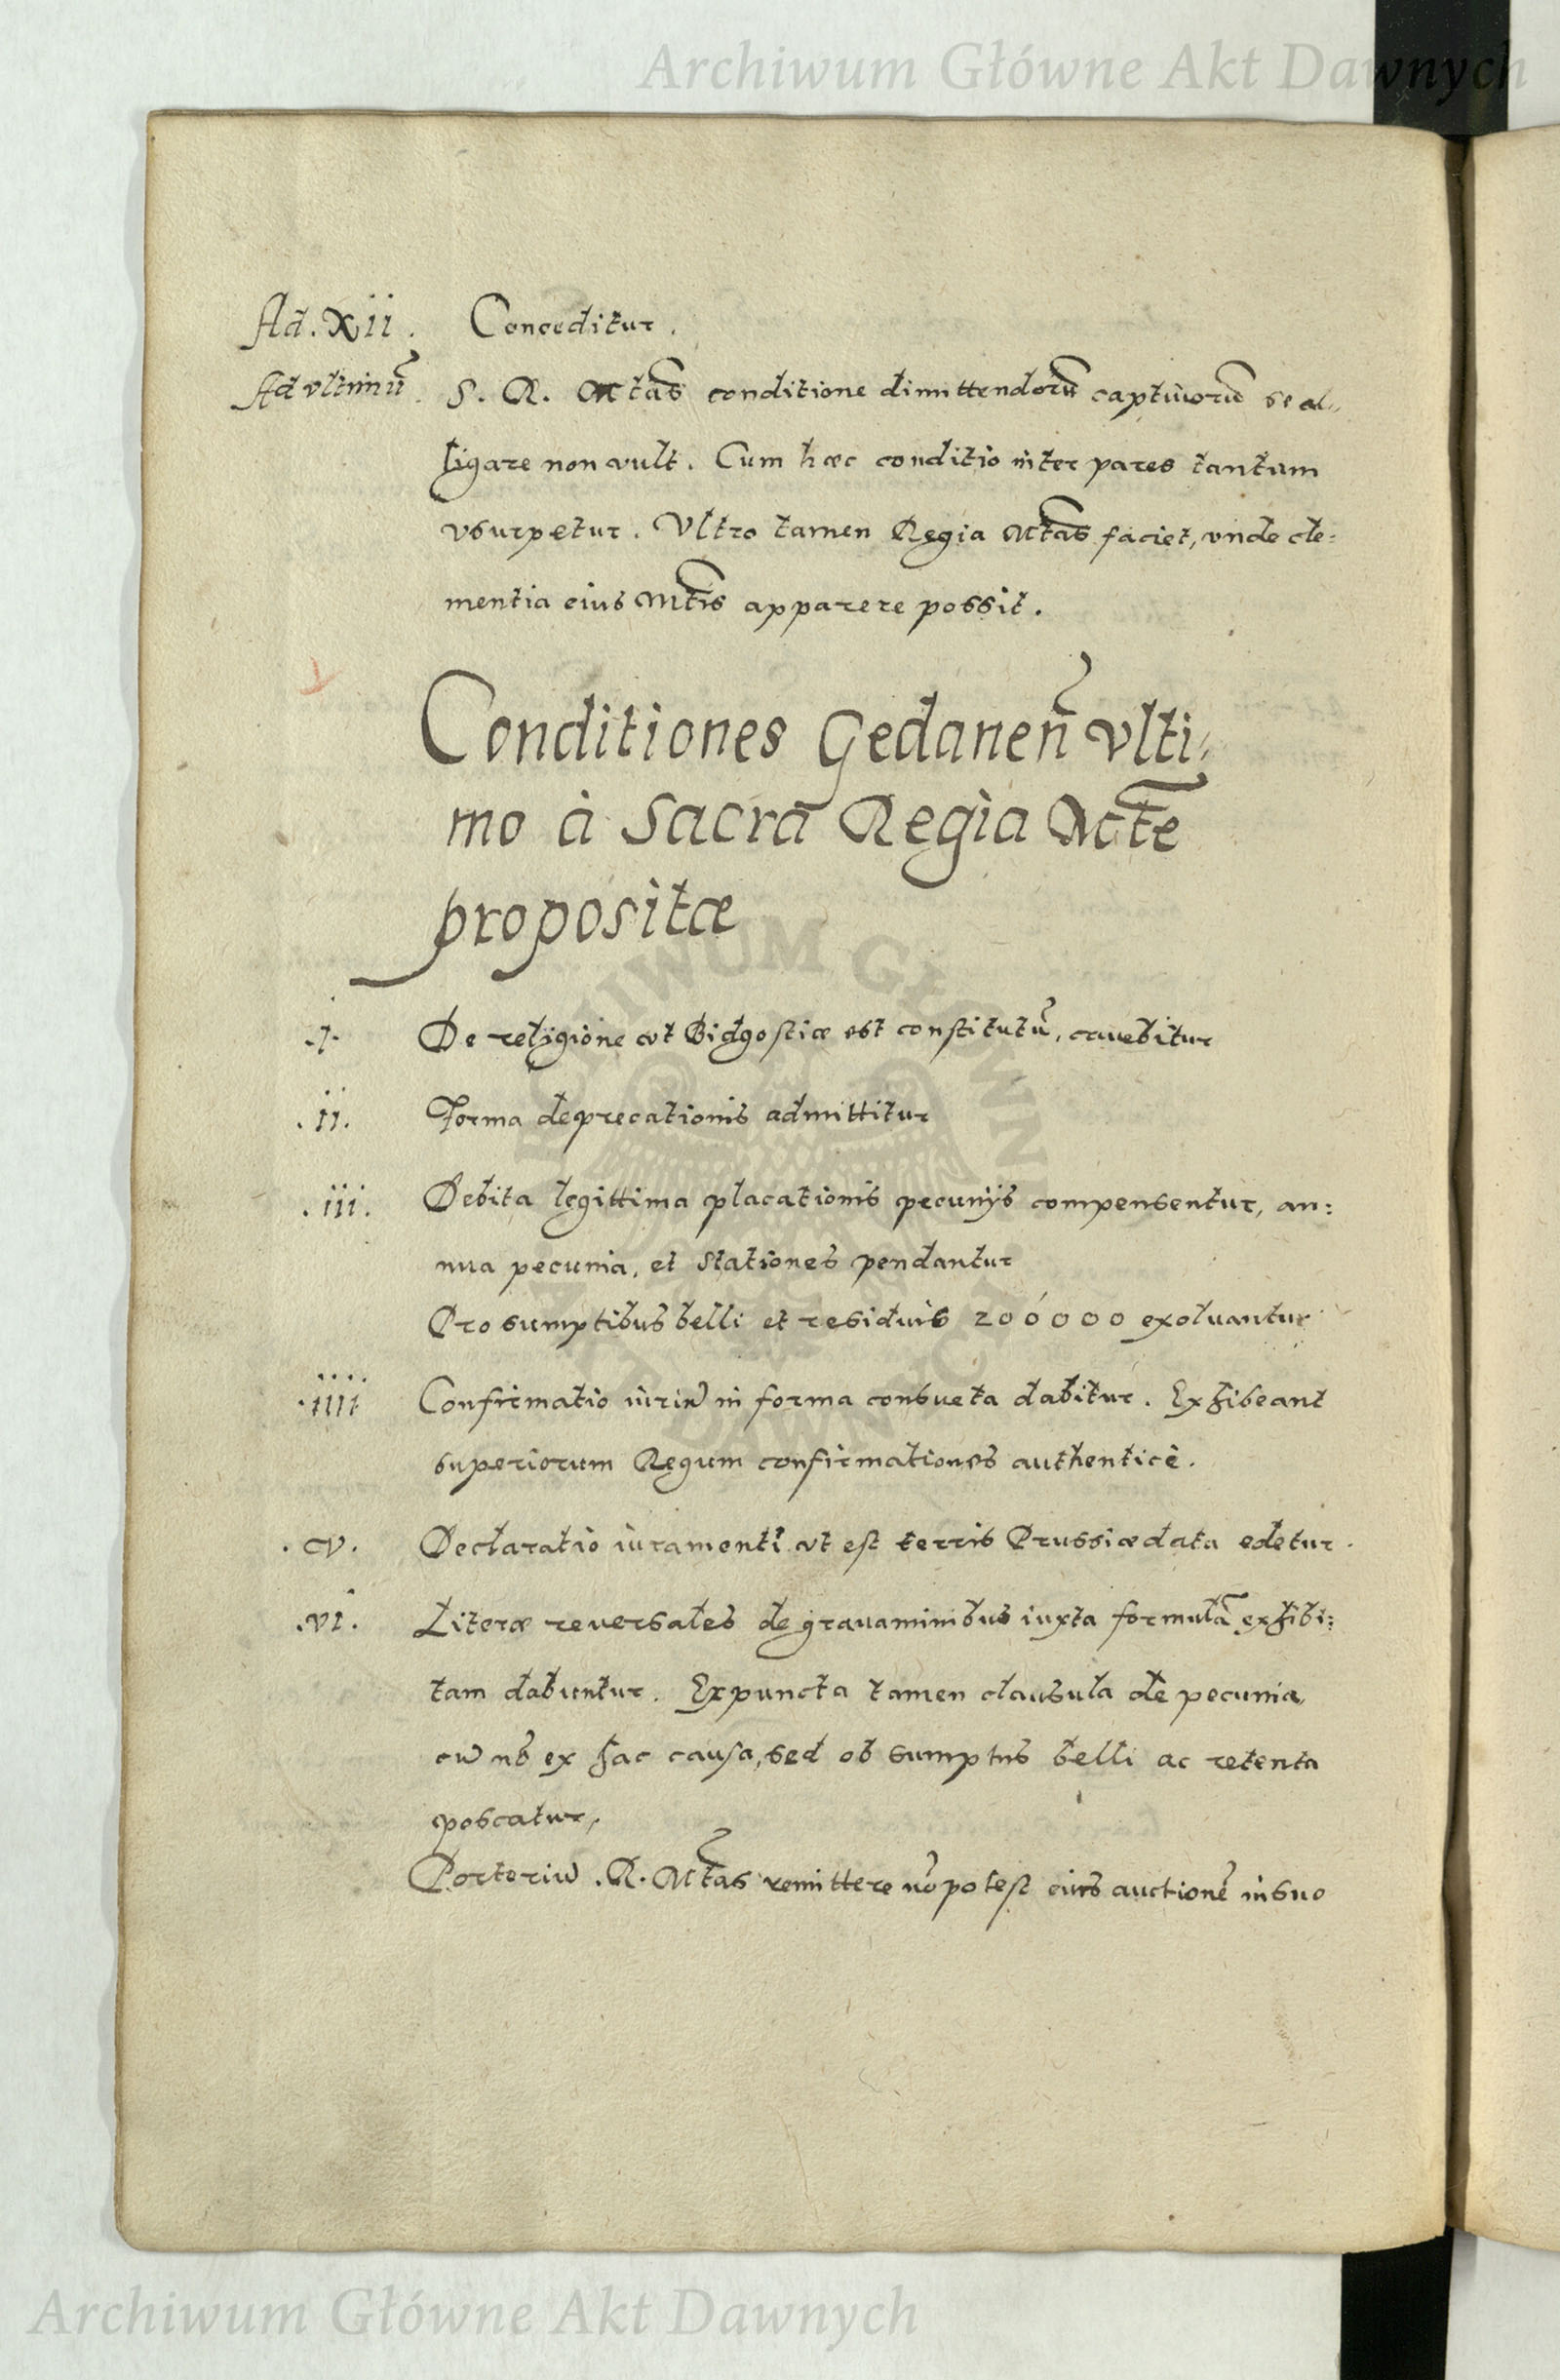 Archiwum Główne Akt Dawnych
Ad. Xii. Conceditur.
Ad vltimū. S. R. Mtas conditione dimittendorū captiuorū se al„
ligare non vult. Cum hæc conditio inter pares tantum
vsurpetur. Vltro tamen Regia Mtas faciet, vnde cle:
mentia eius Mtis apparere possit.
Conditiones Gedanen̄ vlti„
mo à Sacra Regia Mte
propositæ
.i. De religione vt Bidgostiæ est constitutū, cauebitur
.ii. Forma deprecationis admittitur
.iii. Debita legittima placationis pecunijs compensentur, an:
nua pecunia, et stationes pendantur
Pro sumptibus belli et residuis 200000 exoluantur
.iiii Confirmatio iuriū in forma consueta dabitur. Exhibeant
superiorum Regum confirmationes authenticè.
.v. Declaratio iuramenti vt est terris Prussiæ data edetur.
.vi. Literæ reuersales de grauaminibus iuxta formulā exhibi:
tam dabuntur. Expuncta tamen clausula de pecunia,
cū nō ex hac causa, sed ob sumptus belli ac retenta
poscatur,
Portoriū .R. Mtas remittere nō potest eius auctionē in suo
ARCHIWUM GŁÓWNE AKT DAWNYCH
Archiwum Główne Akt Dawnych